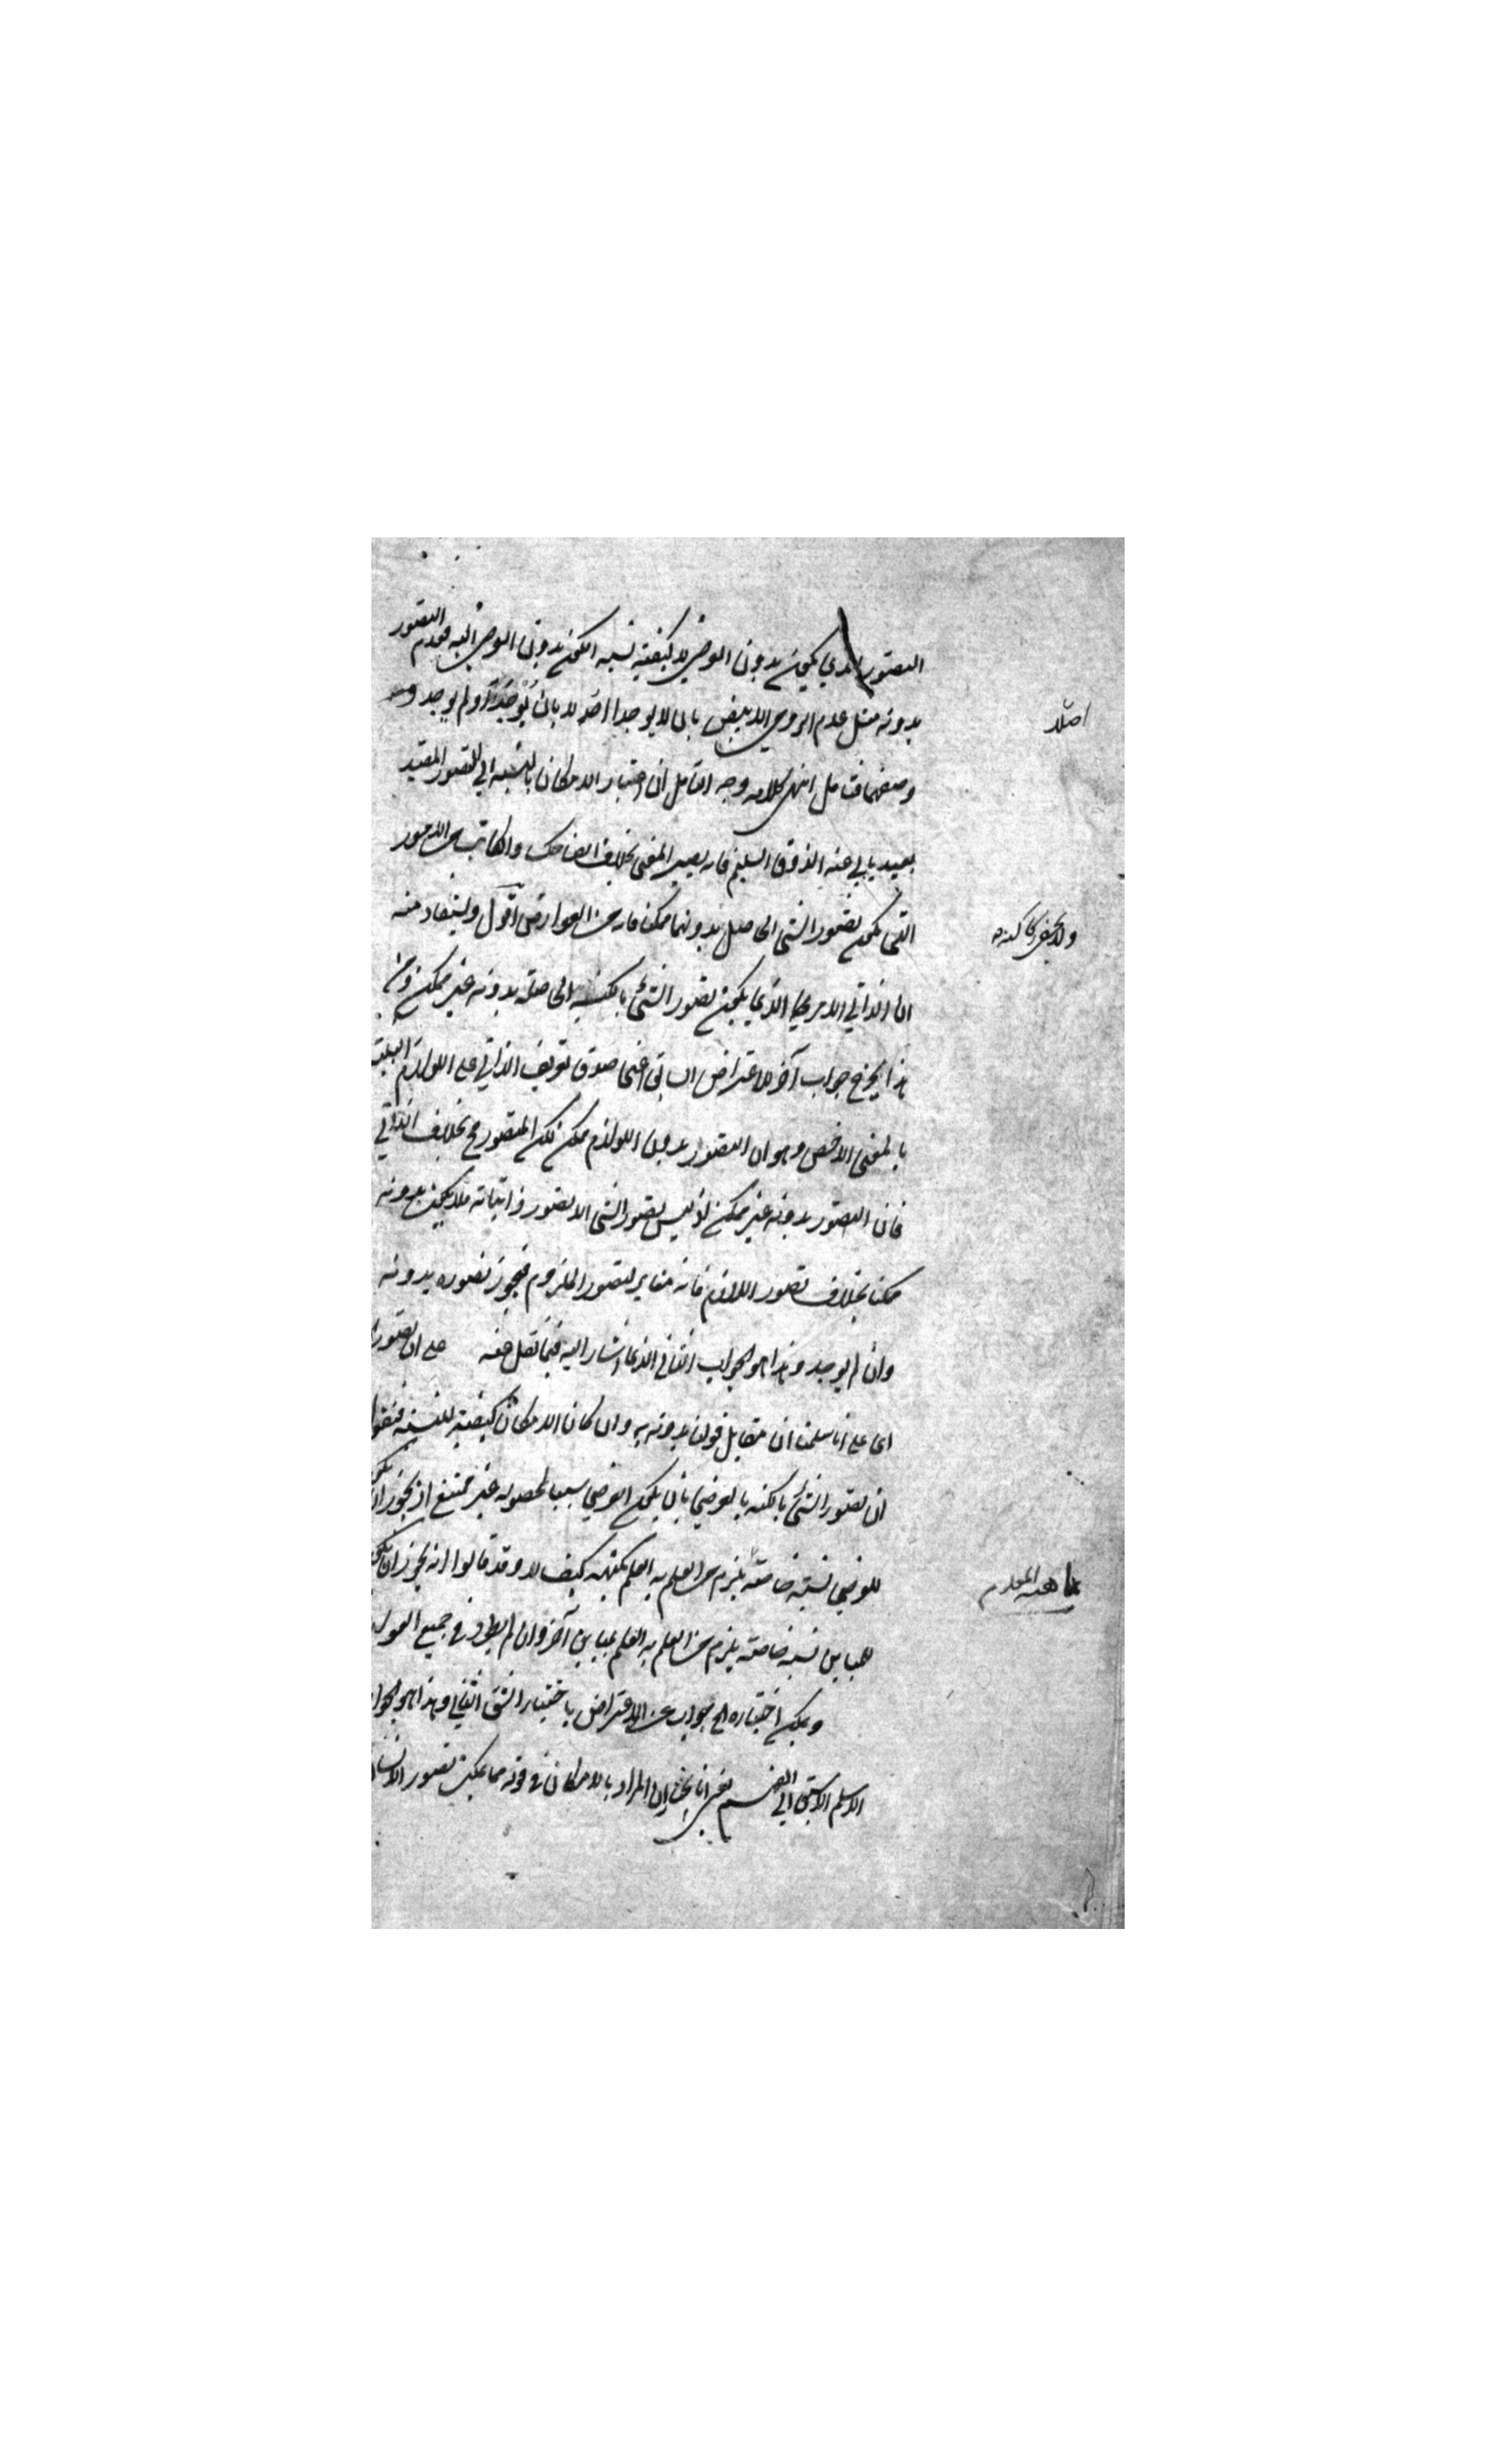 التصور الذي يكون بدون العرضي لا كيفية نسبة الكون بدون العرضي اليه فعدم التصور
بدونه مثل عدم الرومي الابيض بان لا يوجد اصلا لا بان يوجد ولم يوجد
وصفهما فتأمل انتهى كلامه وجه التأمل ان اعتبار الامكان بالنسبة الى التصور المقيد
بعيد يابى عنه الذوق السليم فانه يصير المعنى بخلاف الضاحك والكاتب من الامور
التي يكون تصور الشيء الحاصل بدونها ممكنا فانه من العوارض اقول وليستفاد منه
ان الذاتي الامر الذي يكون تصور الشيء بالكنه الحاصل بدونه غير ممكن ومن
هذا يخرج جواب آخر للاعتراض السابق اعني صدق تعريف الذاتي على اللوازم البينة
بالمعنى الاخص وهو ان التصور بدون اللوازم ممكن لكن المتصور مح بخلاف الذاتي
فان التصور بدونه غير ممكن اذ ليس تصور الشيء الا تصور ذاتياته فلا يكون بدونه
ممكنا بخلاف تصور اللازم فانه مغاير لتصور الملزوم فيجوز تصوره بدونه
وان لم يوجد وهذا هو الجواب الثاني الذي اشار اليه فيما نقل عنه على ان تصور
اي على انا سلمنا ان مقابل قولنا بدونه به وان كان الامكان كيفية للنسبة فنقول
ان تصور الشيء بالكنه بالعرضي بان يكون العرضي سببا لحصوله غير ممتنع اذ يجوز ان يكون
للعرضي نسبة خاصة يلزم من العلم به العلم بكنهه كيف لا وقد قالوا انه يجوز ان يكون
للمباين نسبة خاصة يلزم من العلم به العلم بمباين آخر وان لم يطرد في جميع المواد
ويمكن اختياره الخ جواب عن الاعتراض باختيار الشق الثاني وهذا هو الجواب
الاسلم الاسبق الى الفهم يعني انا نختار ان المراد بالامكان في قوله مما يمكن تصور الانسان
اصلا